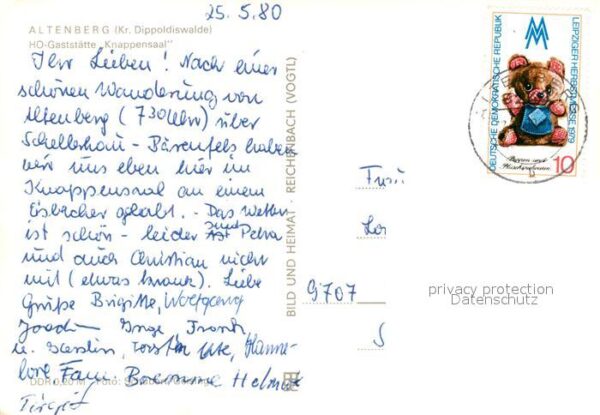 25.5.80
ALTENBERG (Kr. Dippoldiswalde)
HO-Gaststätte „Knappensaal"
Ihr Lieben! Nach einer
schönen Wanderung von
Altenberg (7 30 Uhr) über
Schellerhau - Bärenfels haben
wir uns eben hier im
Knappensaal an einem
Eisbecher gelabt. - Das Wetter
ist schön - leider sind Petra
und auch Christian nicht
mit (etwas krank). Liebe
Grüße Brigitte, Wolfgang
Joachim Inge Frank
u. Kerstin, Torsten Ute, Hanne-
lore, Fam. Helmut
DDR 0,20 M Foto:
BILD UND HEIMAT · REICHENBACH (VOGTL)
DEUTSCHE DEMOKRATISCHE REPUBLIK
LEIPZIGER HERBSTMESSE 1979
Puppen und
Plüschspielwaren
10
9707
privacy protection
Datenschutz